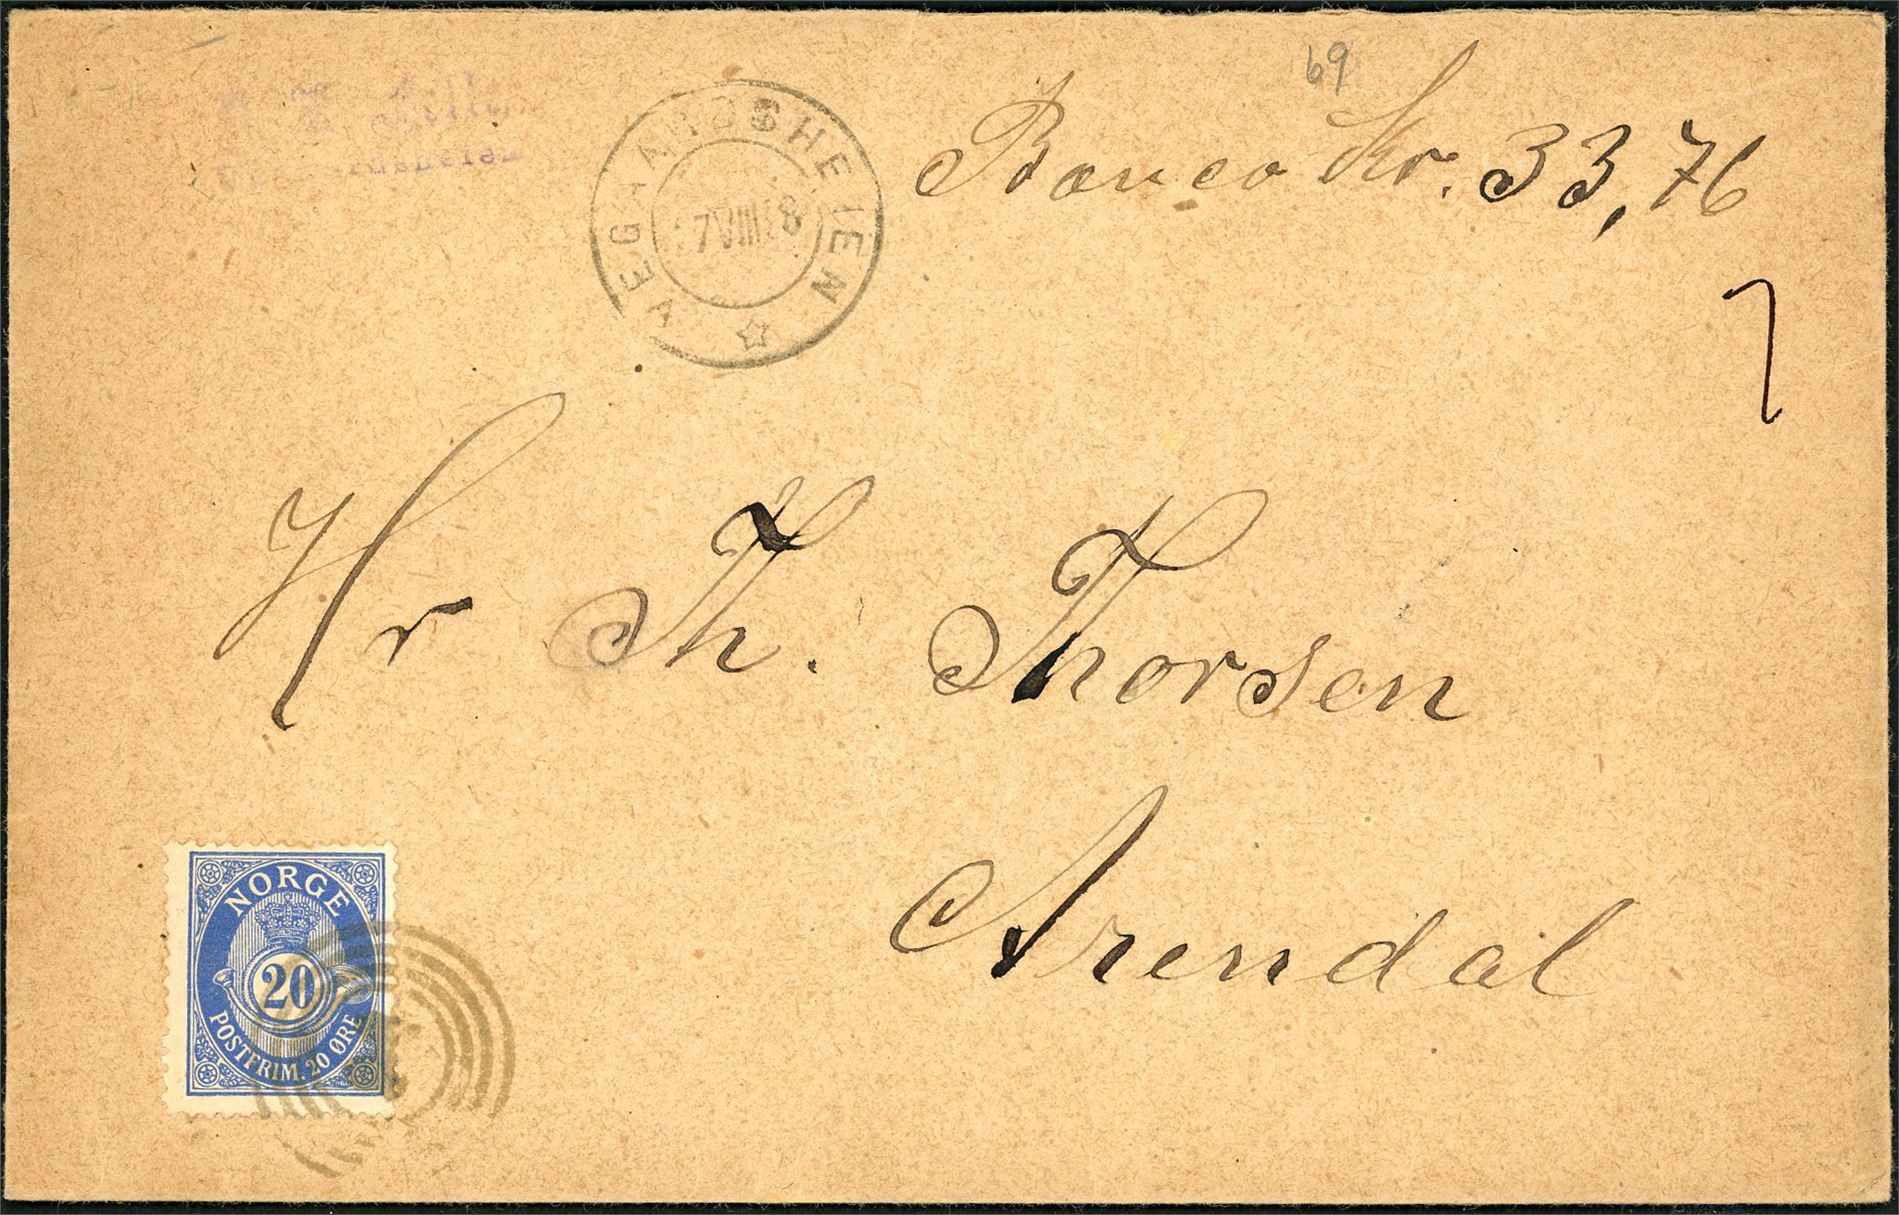 69
Banco Kr. 33,76
VEGAARDSHEIEN
7 VIII
7
Hr Th. Thorsen
Arendal
NORGE
20
POSTFRIM. 20 ØRE